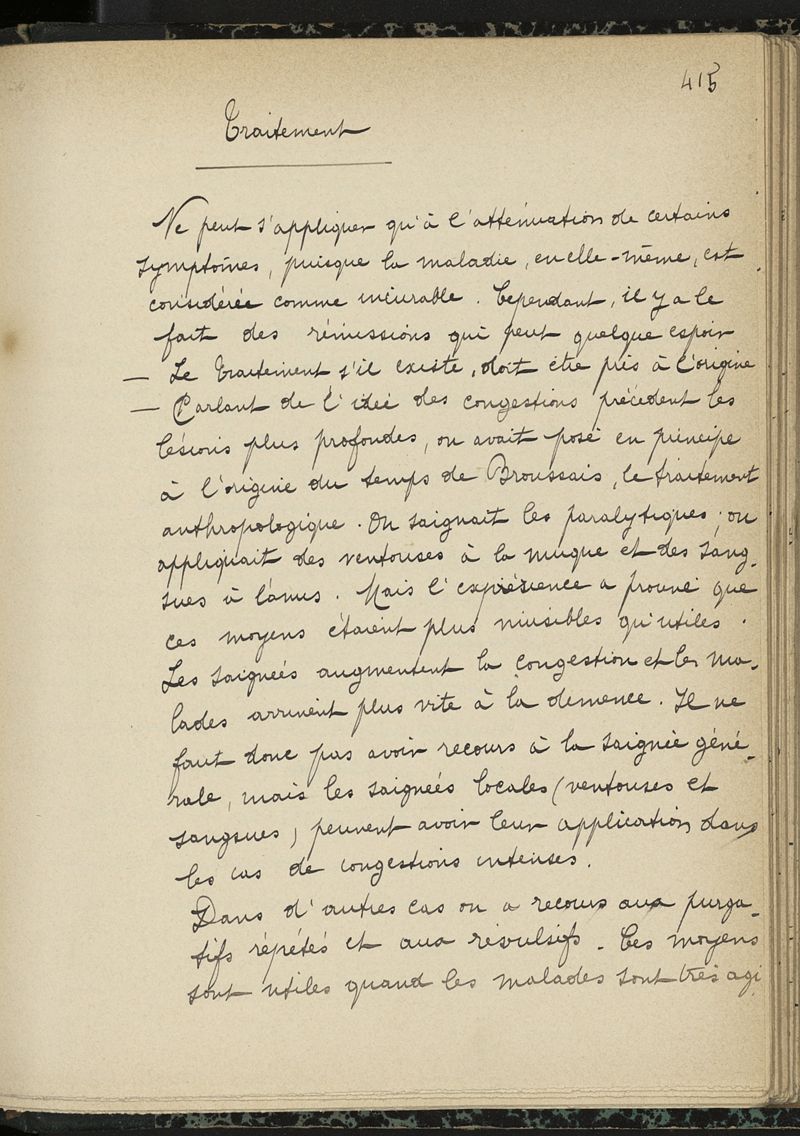 415
Traitement
Ne peut s'appliquer qu'à l'atténuation de certains
symptômes, puisque la maladie, en elle-même, est
considérée comme incurable. Cependant, il y a le
fait des rémissions qui peut quelque espoir
— Le traitement s'il existe, doit être pris à l'origine
— Parlant de l'idée des congestions précédent les
lésions plus profondes, on avait posé en principe
à l'origine du temps de Broussais, le traitement
anthropologique. On saignait les paralytiques ; on
appliquait des ventouses à la nuque et des sang-
sues à l'anus. Mais l'expérience a prouvé que
ces moyens étaient plus nuisibles qu'utiles.
Les saignées augmentent la congestion et les ma-
lades arrivent plus vite à la démence. Il ne
faut donc pas avoir recours à la saignée géné-
rale, mais les saignées locales (ventouses et
sangsues) peuvent avoir leur application dans
les cas de congestions intenses.
Dans d'autres cas on a recours aux purga-
tifs répétés et aux révulsifs. Ces moyens
sont utiles quand les malades sont très agi